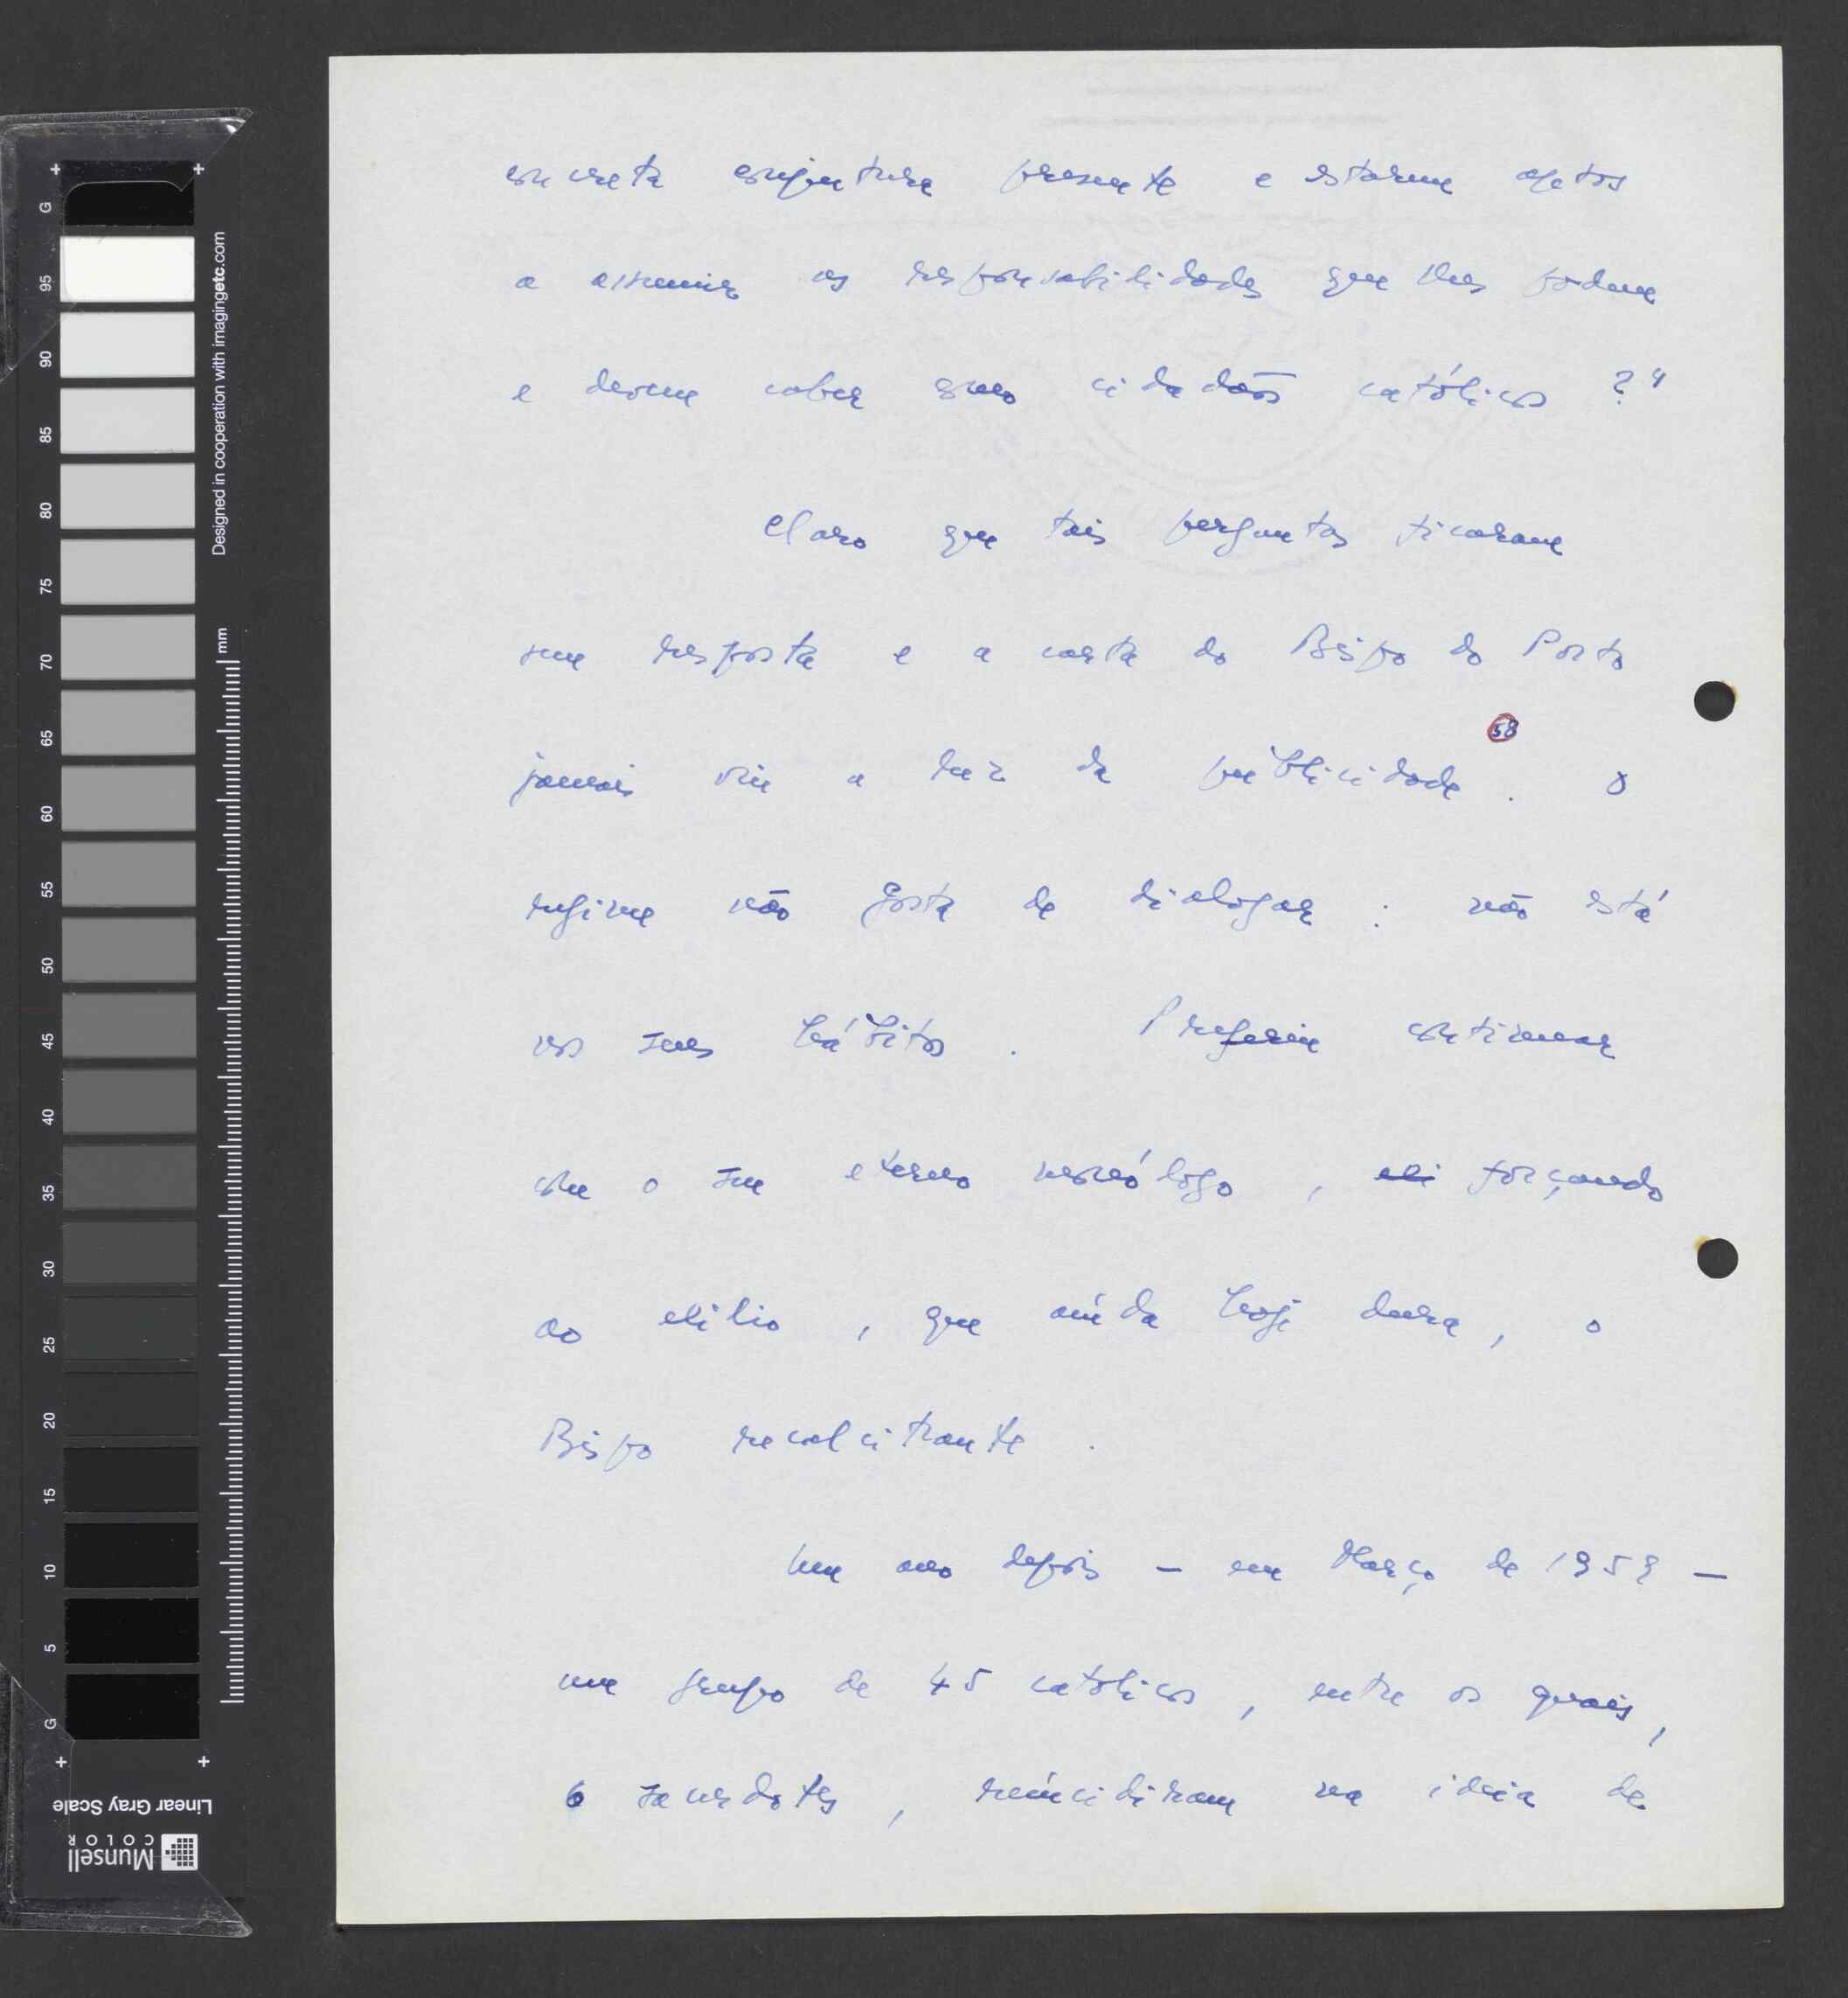 concreta conjuntura presente e estarem aptos
a assumir as responsabilidades que lhes podem
e devem caber como cidadãos católicos ?"
Claro que tais perguntas ficaram
sem resposta e a carta do Bispo do Porto
58
jamais viu a luz da publicidade . O
regime não gosta de dialogar : não está
nos seus hábitos . Preferiu continuar
com o seu eterno monólogo , forçando
ao exílio , que ainda hoje dura , o
Bispo recalcitrante .
Um ano depois – em Março de 1959 –
um grupo de 45 católicos , entre os quais ,
6 sacerdotes , reincidiram na ideia de
G 95 90 85 80 75 70 65 60 55 50 45 40 35 30 25 20 15 10 5 G
Designed in cooperation with imagingetc.com
mm
Linear Gray Scale
Munsell
COLOR